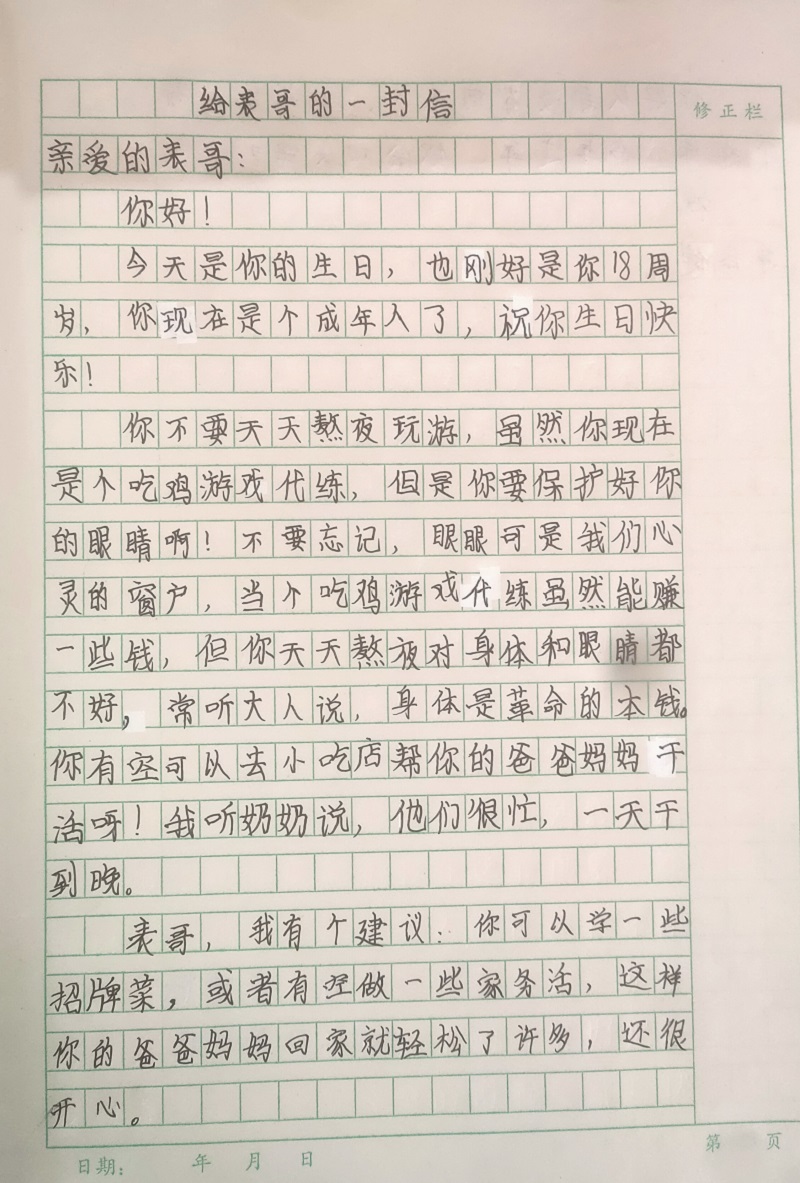 给表哥的一封信
修正栏
亲爱的表哥：
你好！
今天是你的生日，也刚好是你18周
岁，你现在是个成年人了，祝你生日快
乐！
你不要天天熬夜玩游，虽然你现在
是个吃鸡游戏代练，但是你要保护好你
的眼睛啊！不要忘记，眼眼可是我们心
灵的窗户，当个吃鸡游戏代练虽然能赚
一些钱，但你天天熬夜对身体和眼睛都
不好，常听大人说，身体是革命的本钱。
你有空可以去小吃店帮你的爸爸妈妈干
活呀！我听奶奶说，他们很忙，一天干
到晚。
表哥，我有个建议：你可以学一些
招牌菜，或者有空做一些家务活，这样
你的爸爸妈妈回家就轻松了许多，还很
开心。
第 页
日期： 年 月 日